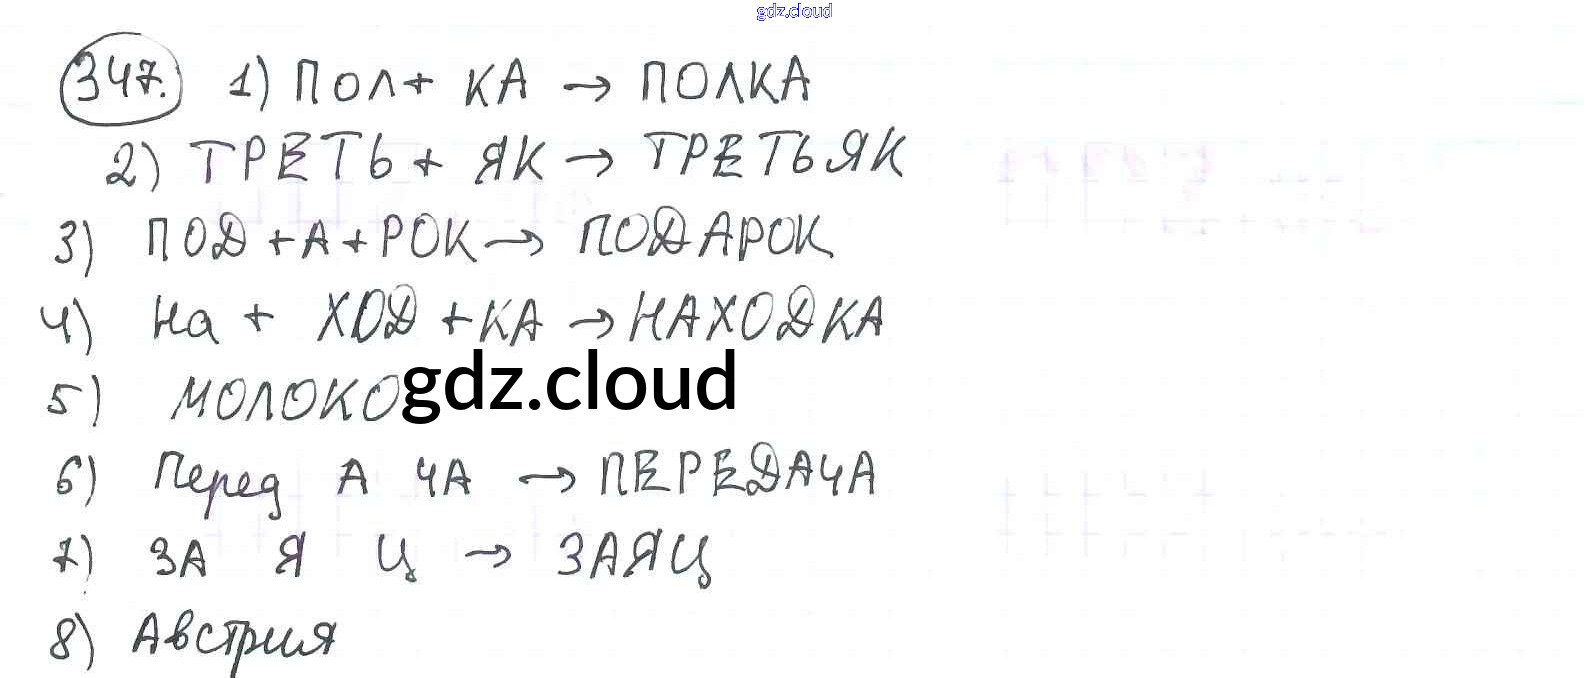 gdz.cloud
347. 1) ПОЛ + КА → ПОЛКА
2) ТРЕТЬ + ЯК → ТРЕТЬЯК
3) ПОД + А + РОК → ПОДАРОК
4) На + ХОД + КА → НАХОДКА
5) МОЛОКО gdz.cloud
6) Перед А ЧА → ПЕРЕДАЧА
7) ЗА Я Ц → ЗАЯЦ
8) Австрия